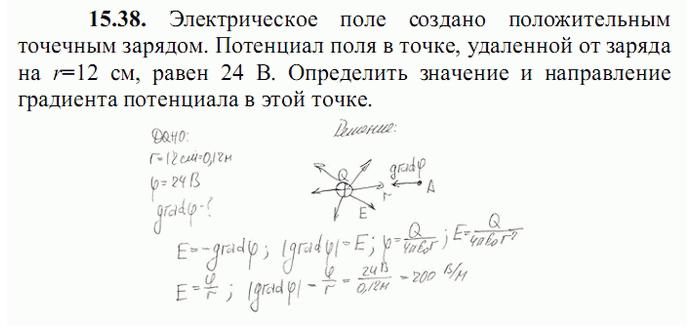 15.38. Электрическое поле создано положительным
точечным зарядом. Потенциал поля в точке, удаленной от заряда
на r=12 см, равен 24 В. Определить значение и направление
градиента потенциала в этой точке.
Дано:
Решение:
r=12см=0,12м
φ=24В
gradφ-?
Q
gradφ
r
A
E
E=-gradφ; |gradφ|=E; φ=Q/4πε₀r; E=Q/4πε₀r²
E=φ/r; |gradφ|=φ/r=24В/0,12м=200 В/м